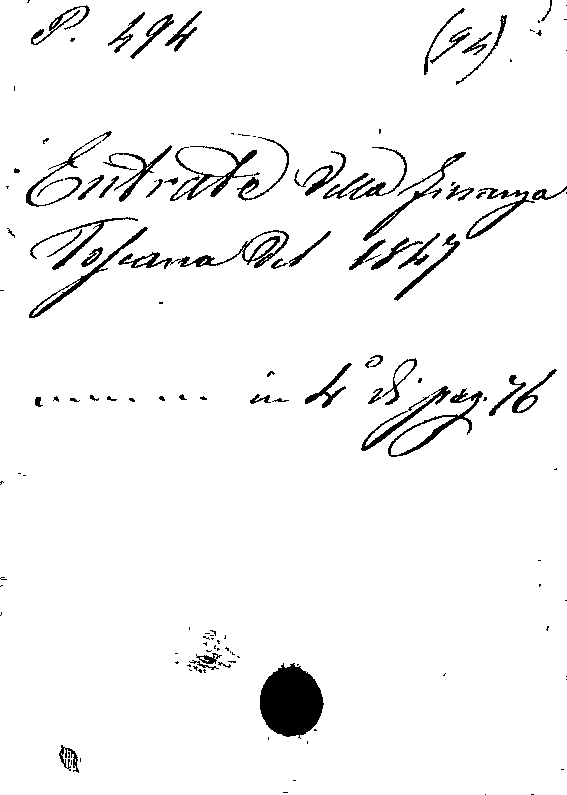 P. 494 (94)
Entrate della Finanza
Toscana del 1847
........ in 4° di pag. 76